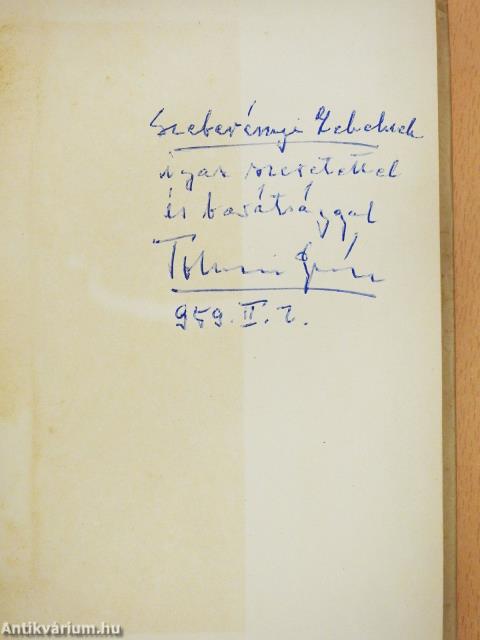 Szeberényi Zebeknek
igaz szeretettel
és barátsággal
Tolnai Gábor
959. II. 2.
Antikvárium.hu